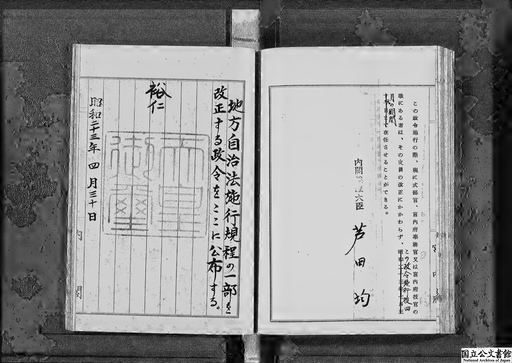 この政令施行の際、現に式部官、宮内府事務官又は宮内府技官の
職にある者は、その定員の改正にかかわらず、
この政令施行後四
月の間
在任させることができる。
内閣総理大臣
芦田均
地方自治法施行規程の一部を
改正する政令をここに公布する。
裕仁
御璽
昭和二十三年四月三十日
内閣
国立公文書館
National Archives of Japan